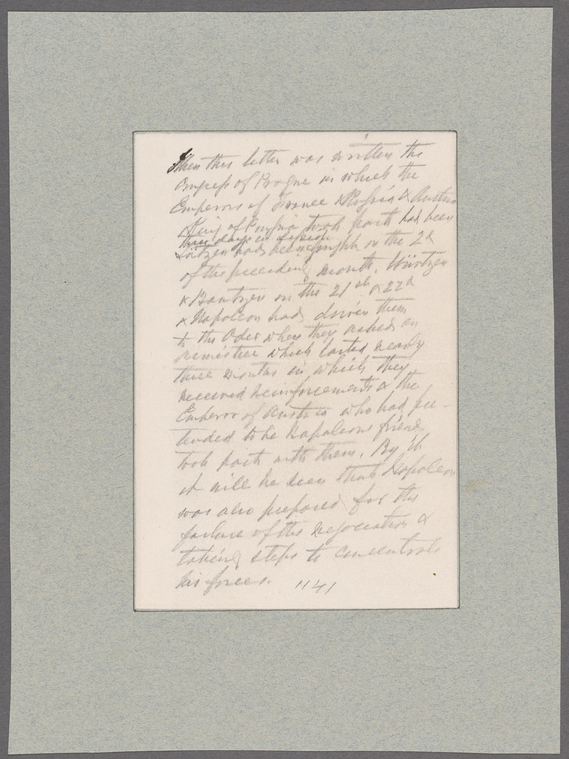 When this letter was written the
Congress of Prague in which the
Emperors of France & Russia & Austria
& King of Prussia took part had been
three days in session
Lutzen had been fought on the 2d
of the preceding month, Würtzen
& Bautzen on the 21st & 22d
& Napoleon had driven them
to the Oder when they asked an
armistice which lasted nearly
three months in which they
received reinforcements & the
Emperor of Austria who had pre-
tended to be Napoleons friend
took part with them. By it
it will be seen that Napoleon
was also prepared for the
failure of the negociation &
taking steps to concentrate
his forces.